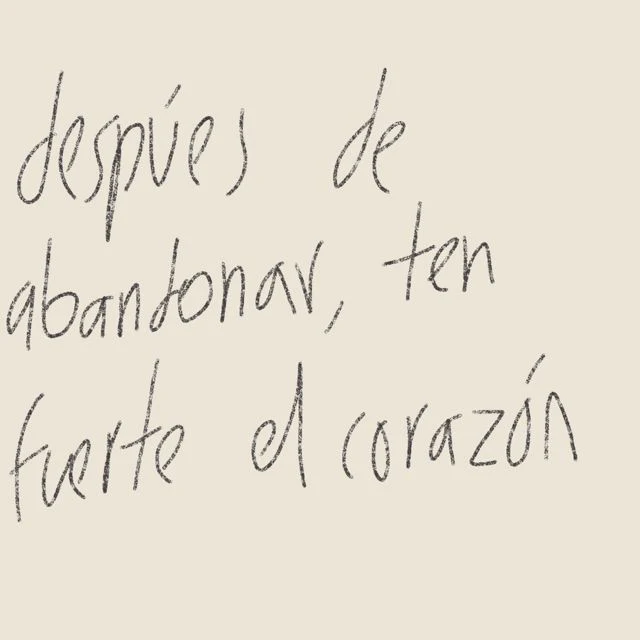 despúes de
abandonar, ten
fuerte el corazón